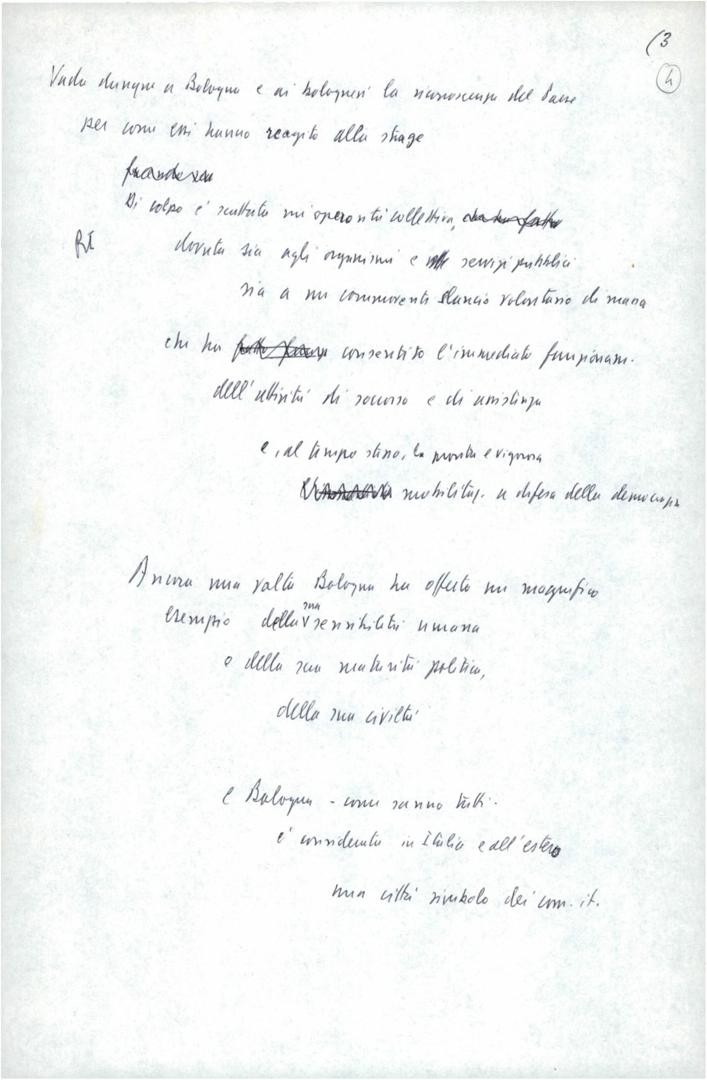 (3
4
Vada dunque a Bologna e ai bolognesi la riconoscenza del Paese
per come essi hanno reagito alla strage
Di colpo è scattata un'operosità collettiva,
dovuta sia agli organismi e servizi pubblici
sia a un commovente slancio volontario di massa
che ha consentito l'immediato funzionam.
dell'attività di soccorso e di assistenza
e, al tempo stesso, la pronta e vigorosa
mobilitaz. a difesa della democrazia
Ancora una volta Bologna ha offerto un magnifico
esempio della sua sensibilità umana
e della sua maturità politica,
della sua civiltà
e Bologna - come sanno tutti -
è considerata in Italia e all'estero
una città simbolo dei com. it.